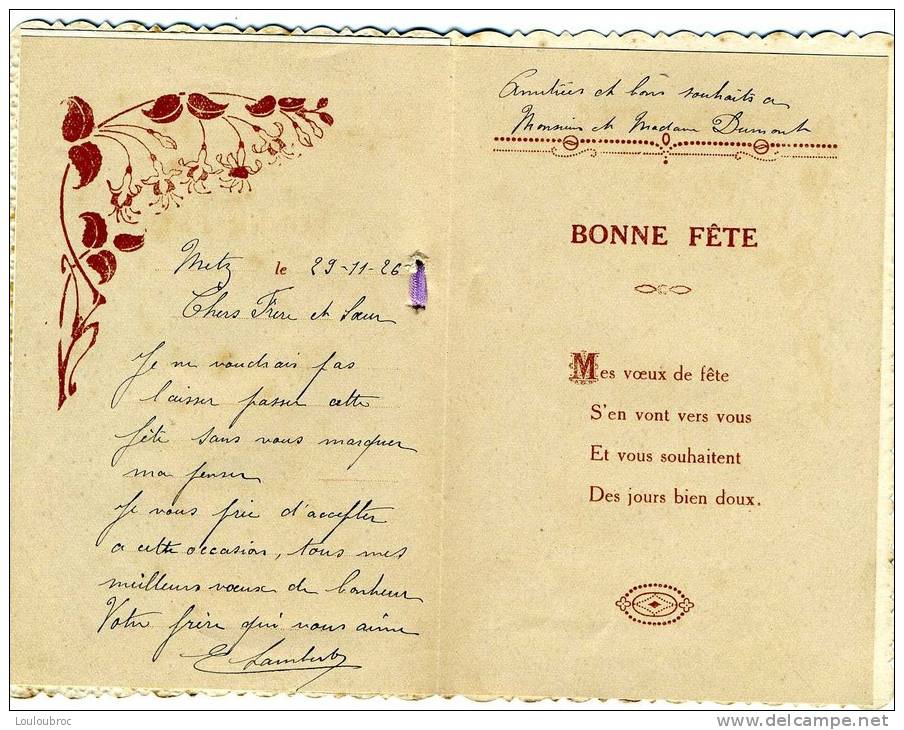 Metz le 29-11-26
Chers Frere et Sœur
Je ne voudrais pas
laisser passer cette
fête sans vous marquer
ma penser
Je vous prie d'accepter
a cette occasion, tous mes
meilleurs vœux de bonheur
Votre frère qui vous aime
E Lambert
Amitiées et bons souhaits a
Monsieur et Madame Dumont
BONNE FÊTE
Mes vœux de fête
S'en vont vers vous
Et vous souhaitent
Des jours bien doux.
Louloubroc
www.delcampe.net